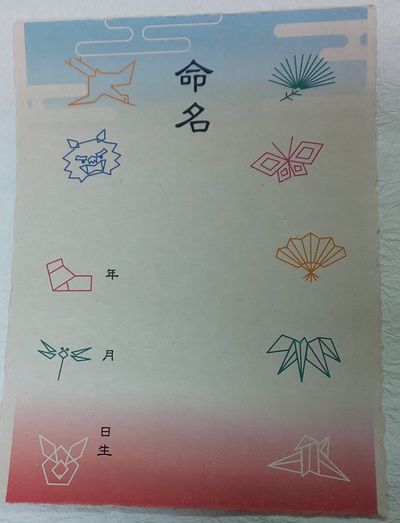 命名
年
月
日生